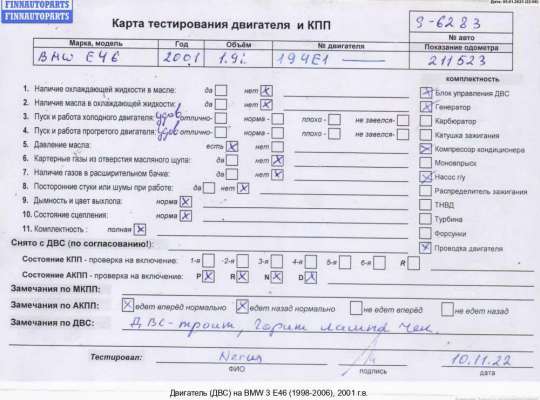 FINNAUTOPARTS
FINNAUTOPARTS
Карта тестирования двигателя и КПП
9-6283
№ авто
Марка, модель Год Объём № двигателя Показание одометра
BMW E46 2001 1.9i 194E1 211523
комплектность
1. Наличие охлаждающей жидкости в масле: да нет X
X Блок управления ДВС
2. Наличие масла в охлаждающей жидкости: да нет X
X Генератор
3. Пуск и работа холодного двигателя: удов отлично- норма - плохо - не завелся-
Карбюратор
4. Пуск и работа прогретого двигателя: удов отлично- норма - плохо - не завелся-
Катушка зажигания
5. Давление масла: есть X нет
X Компрессор кондиционера
6. Картерные газы из отверстия масляного щупа: да нет X
Моновпрыск
7. Наличие газов в расширительном бачке: да нет X
X Насос г/у
8. Посторонние стуки или шумы при работе: да нет X
Распределитель зажигания
9. Дымность и цвет выхлопа: норма X
ТНВД
10. Состояние сцепления: норма X
Турбина
11. Комплектность : полная X
Форсунки
Снято с ДВС (по согласованию!):
X Проводка двигателя
Состояние КПП - проверка на включение: 1-я -2-я - 3-я 4-я 5-я 6-я R
Состояние АКПП - проверка на включение: P X R X N X D X
Замечания по МКПП:
Замечания по АКПП: X едет вперёд нормально X едет назад нормально не едет вперёд не едет назад
Замечания по ДВС: ДВС-троит, Горит лампа чек.
Тестировал: 10.11.22
ФИО подпись дата
Двигатель (ДВС) на BMW 3 E46 (1998-2006), 2001 г.в.